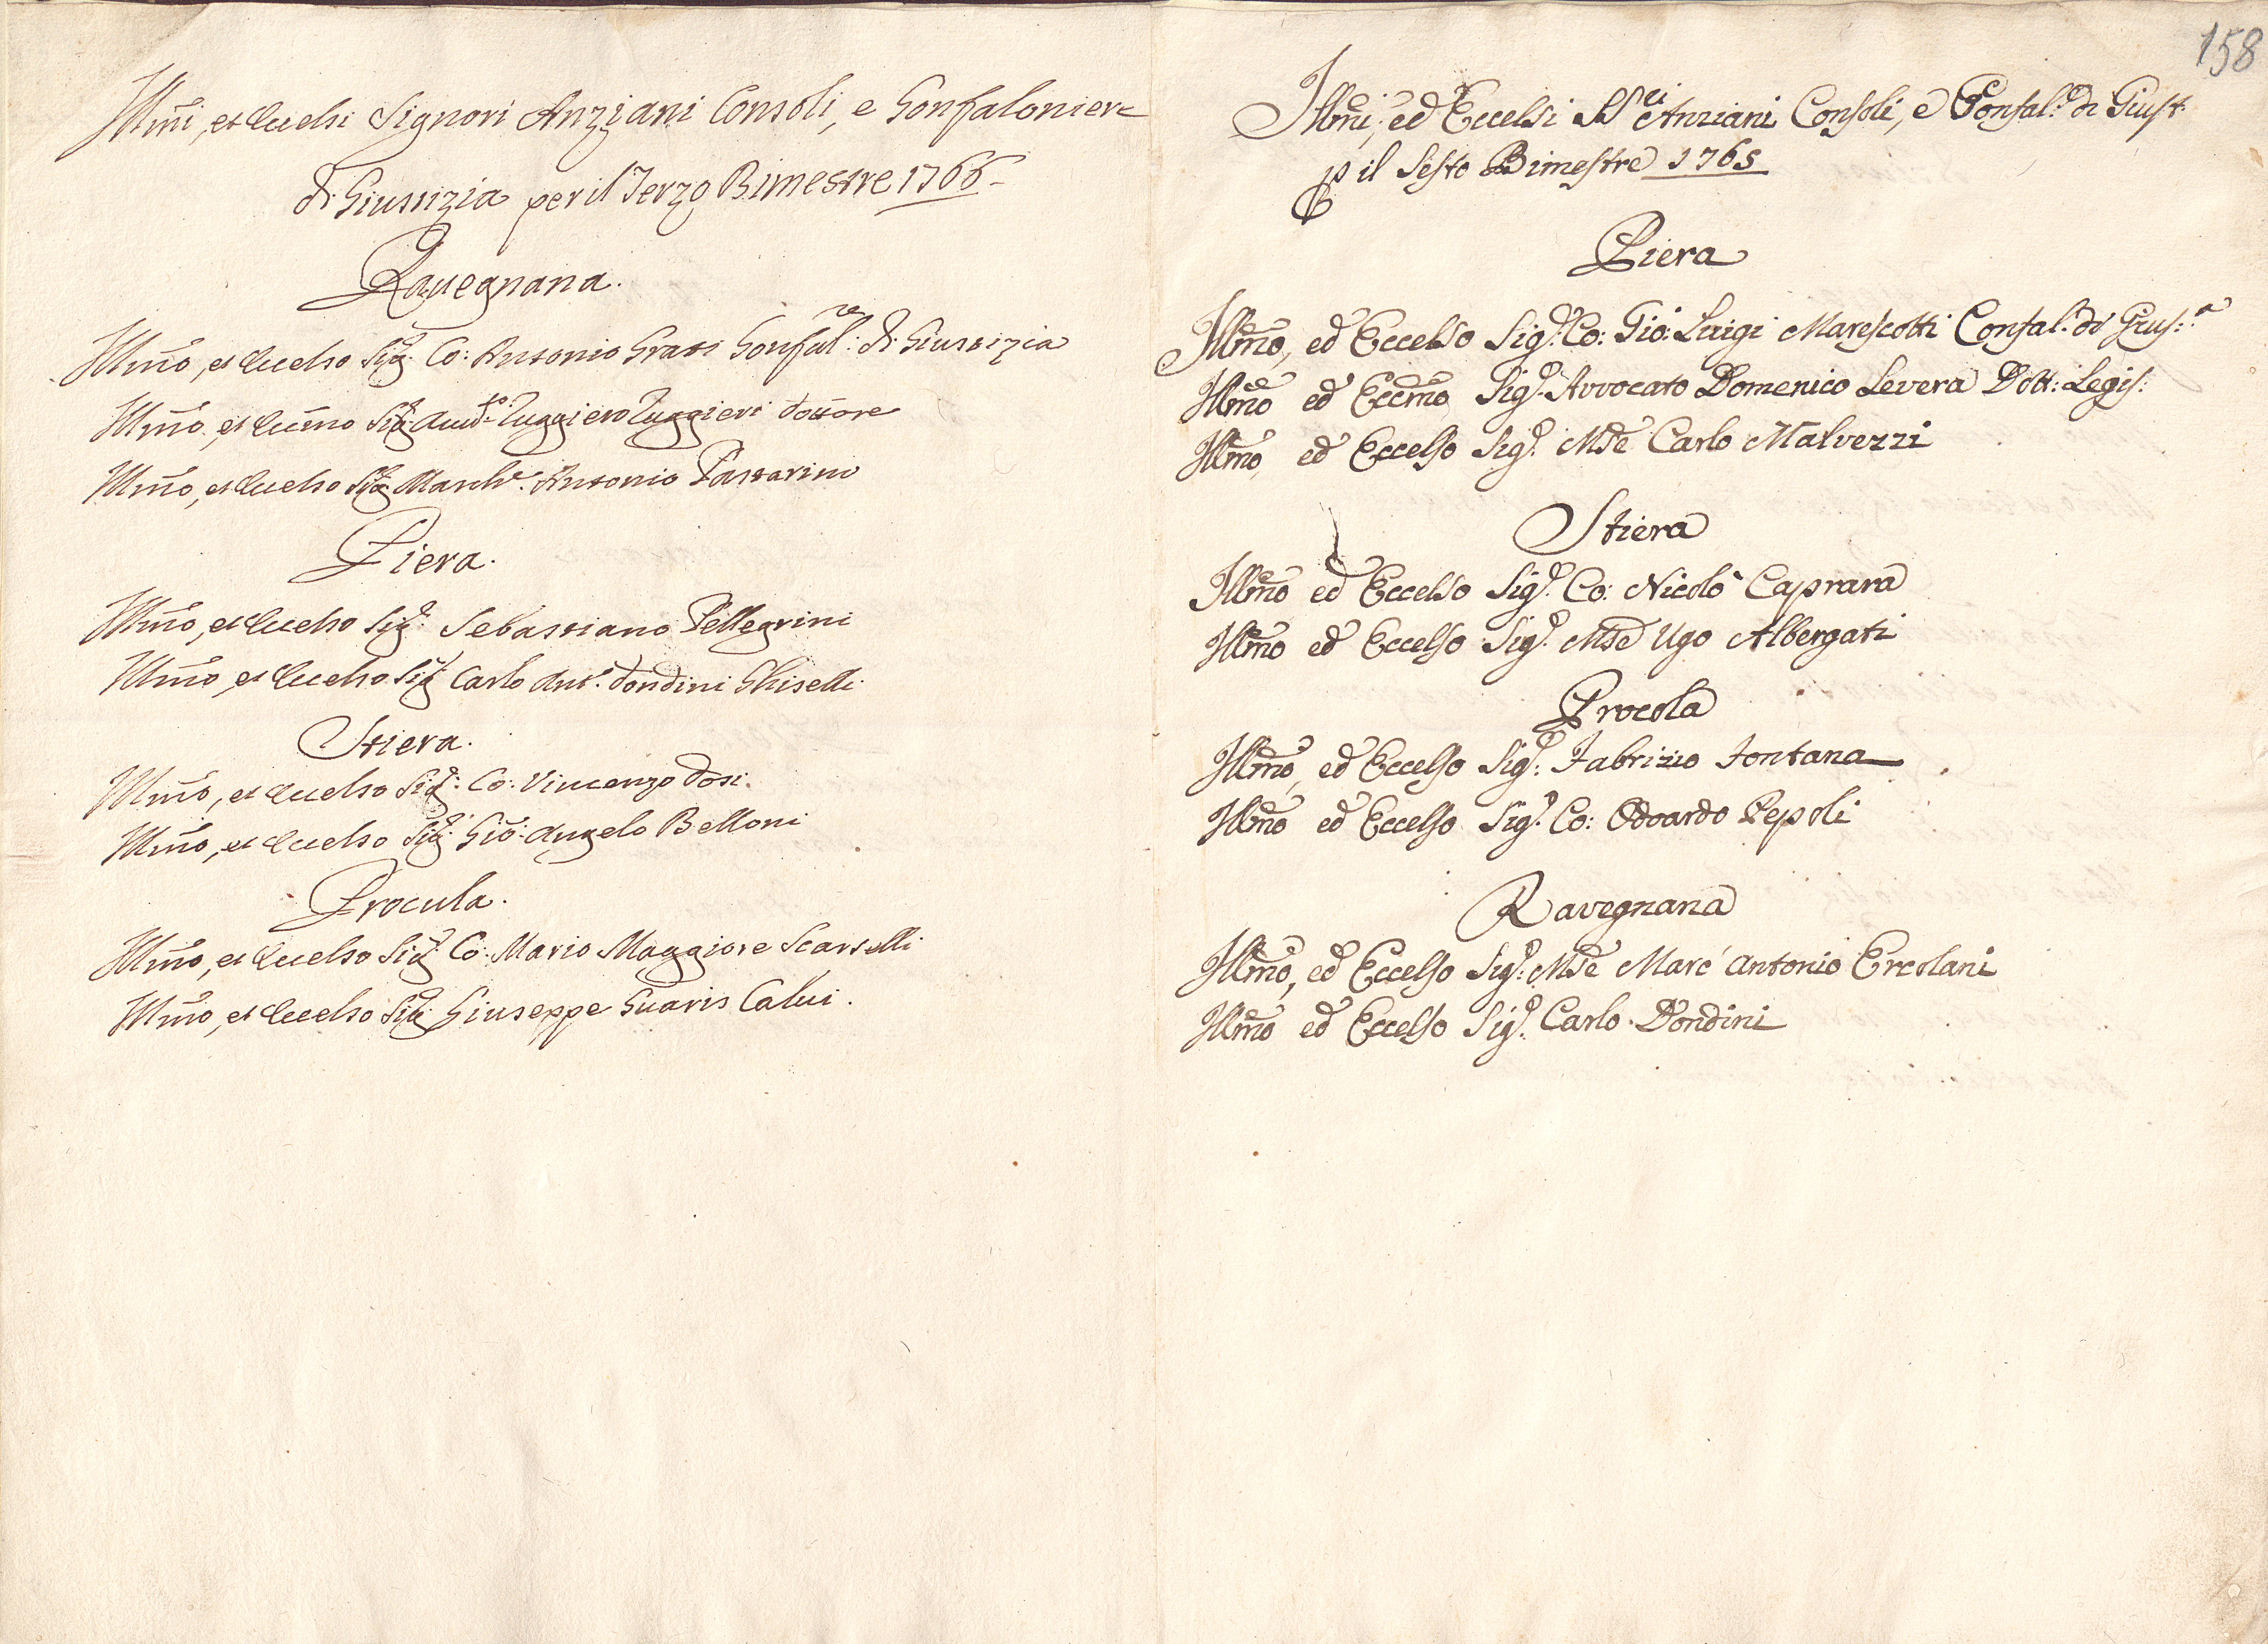 Illmi, et Eccelsi Signori Anziani Consoli, e Gonfaloniere
di Giustizia per il Terzo Bimestre 1766
Ravegnana.
Illmo, et Eccelso Sigr. Co: Antonio Grati Gonfalre: di Giustizia
Illmo, et Eccmo Sigr. Avvto. Ruggiero Ruggieri Dottore
Illmo, et Eccelso Sigr. Marche. Antonio Tartarini
Piera.
Illmo, et Eccelso Sigr. Sebastiano Pellegrini
Illmo, et Eccelso Sigr. Carlo Anto. Dondini Ghiselli
Stiera.
Illmo, et Eccelso Sigr. Co: Vincenzo Dosi.
Illmo, et Eccelso Sigr. Gio: Angelo Belloni
Procula.
Illmo, et Eccelso Sigr. Co: Mario Maggiore Scarselli
Illmo, et Eccelso Sigr. Giuseppe Guaris Calvi.
158
Illmi, ed Eccelsi SSri Anziani Consoli, e Gonfal.e di Giust.
p il Sesto Bimestre 1765
Piera
Illmo, ed Eccelso Sigr. Co: Gio: Luigi Marescotti Confal.e di Gius:a
Illmo ed Eccmo Sigr. Avvocato Domenico Levera Dott: Legis:
Illmo, ed Eccelso Sigr. Mse Carlo Malvezzi
Stiera
Illmo ed Eccelso Sigr. Co: Nicolò Caprara
Illmo ed Eccelso Sigr. Mse Ugo Albergati
Procola
Illmo, ed Eccelso Sigr: Fabrizio Fontana
Illmo ed Eccelso Sigr. Co: Odoardo Pepoli
Ravegnana
Illmo, ed Eccelso Sigr: Mse Marc' Antonio Ercolani
Illmo ed Eccelso Sigr. Carlo Dondini